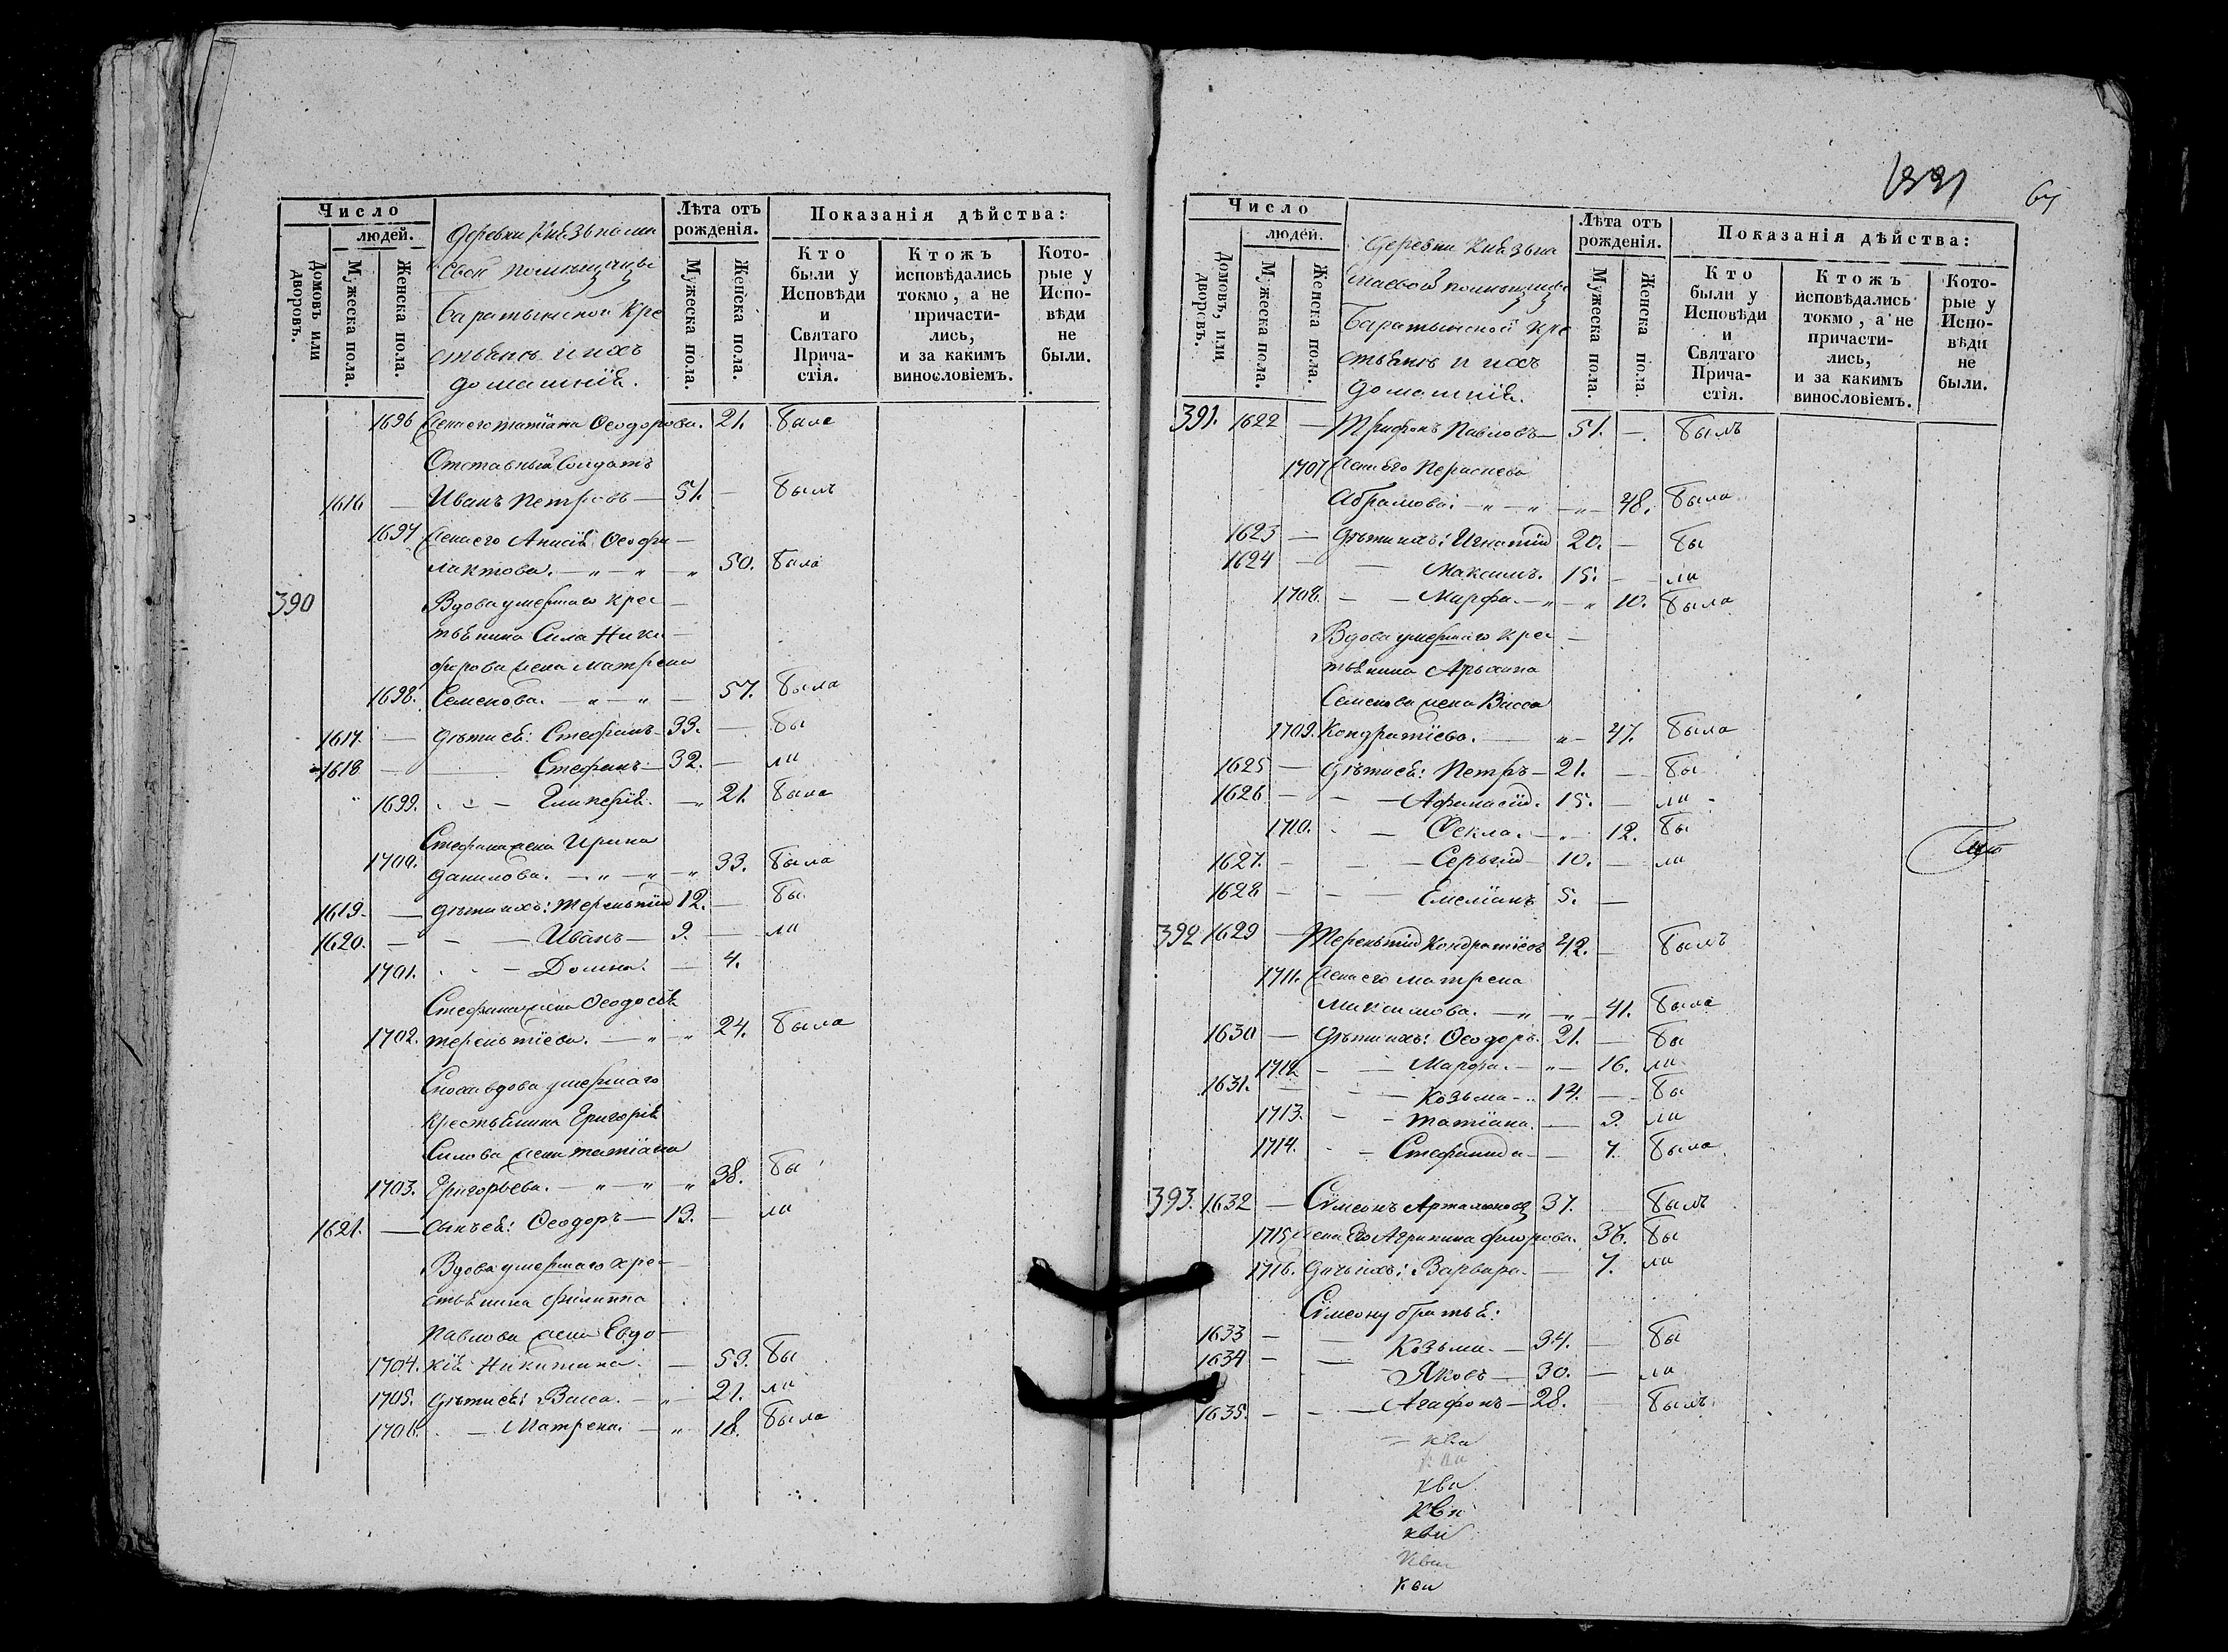 Число
людей.
Домовъ или дворовъ.
Мужеска пола.
Женска пола.
помѣщицы
Баратынской Кре
стьянъ и ихъ
домашнія.
Лѣта отъ рожденія.
Мужеска пола.
Женска пола.
Показанія дѣйства:
Кто были у Исповѣди и Святаго Прича-стія.
Ктожъ исповѣдались токмо, а не причасти-лись, и за какимъ винословіемъ.
Кото-рые у Испо-вѣди не были.
1696 Жена его Татіана Ѳеодорова. 21. Была
Отставный Солдатъ
1616 — Иванъ Петровъ — 51. — Былъ
1697 Жена его Анисія Ѳеофи —
лактова. — „ — „ — „ 50. Была
390 Вдова умершаго Крес —
тьянина Сила Ники —
форова жена Матрена
1698. Семенова. — „ — „ — 57. Была
1617. — Дѣти ея: Стефанъ — 33. — Бы
1618 — — Стефанъ — 32. — ли
1699. — Гликерія. — „ 21. Была
Стефана жена Ирина
1700. Данилова. — „ — „ — „ 33. Была
1619. — Дѣти ихъ: Терентій 12. — Бы
1620. — — — Иванъ — 9. — ли
1701. — Домна. — 4.
Стефана жена Ѳеодосія
1702. Терентіева. — „ — „ 24. Была
Сноха вдова умершаго
Крестьянина Григорія
Силова жена Татіана
1703. Григорьева. — „ — „ „ 38. Бы
1621. — Сынъ ея: Ѳеодоръ — 13. — ли
Вдова умершаго Кре —
стьянина Филиппа
Павлова жена Евдо —
1704. кія Никитина. — 59. Бы
1705. Дѣти ея: Васса. — „ — 21. ли
1706. — Матрена. — „ 18. Была
Число
людей.
Домовъ, или дворовъ.
Мужеска пола.
Женска пола.
помѣщицы
Баратынской Кре
стьянъ и ихъ
домашнія.
Лѣта отъ рожденія.
Мужеска пола.
Женска пола.
Показанія дѣйства:
Кто были у Исповѣди и Святаго Прича-стія.
Ктожъ исповѣдались токмо, а не причасти-лись, и за какимъ винословіемъ.
Кото-рые у Испо-вѣди не были.
391. 1622 — Трифонъ Павловъ — 51. — Былъ
1707 Жена Его
Абрамова. — „ — „ — „ — 48. Была
1623 — Дѣти ихъ: Игнатій 20. — Бы
1624 — — Максимъ. 15. — ли
1708. — — Марфа. — „ — „ 10. Была
Вдова умершаго Крес —
тьянина Архипа
Семенова жена Васса
1709. Кондратіева. — „ — 47. Была
1625 — Дѣти ея: Петръ — 21. — Бы
1626 — — — Афанасій. 15. — ли
1710. — Ѳекла. — „ — 12. Бы
1627. — — Сергій — 10. — ли
1628 — — — Емеліанъ 5. —
392 1629 — Терентій Кондратіевъ 42. — Былъ
1711. Жена его Матрена
Максимова. — „ — „ — 41. Была
1630 — Дѣти ихъ: Ѳеодоръ. 21. — Бы
1712 — — Марфа. — „ — 16. ли
1631. — — Козьма — 14. — Бы
1713. — — Татіана. — 9. ли
1714. — Стефанида — 7. Была
393. 1632 — Сѵмеонъ Артамоновъ 37. Былъ
1715 Жена Его Агрипина 36. Бы
1716. Дочь ихъ: Варвара. — 7. ли
Сѵмеону братья:
1633 — — Козьма. — 34. — Бы
1634 — — Яковъ — 30. — ли
1635. — — — Агафонъ — 28. — Былъ